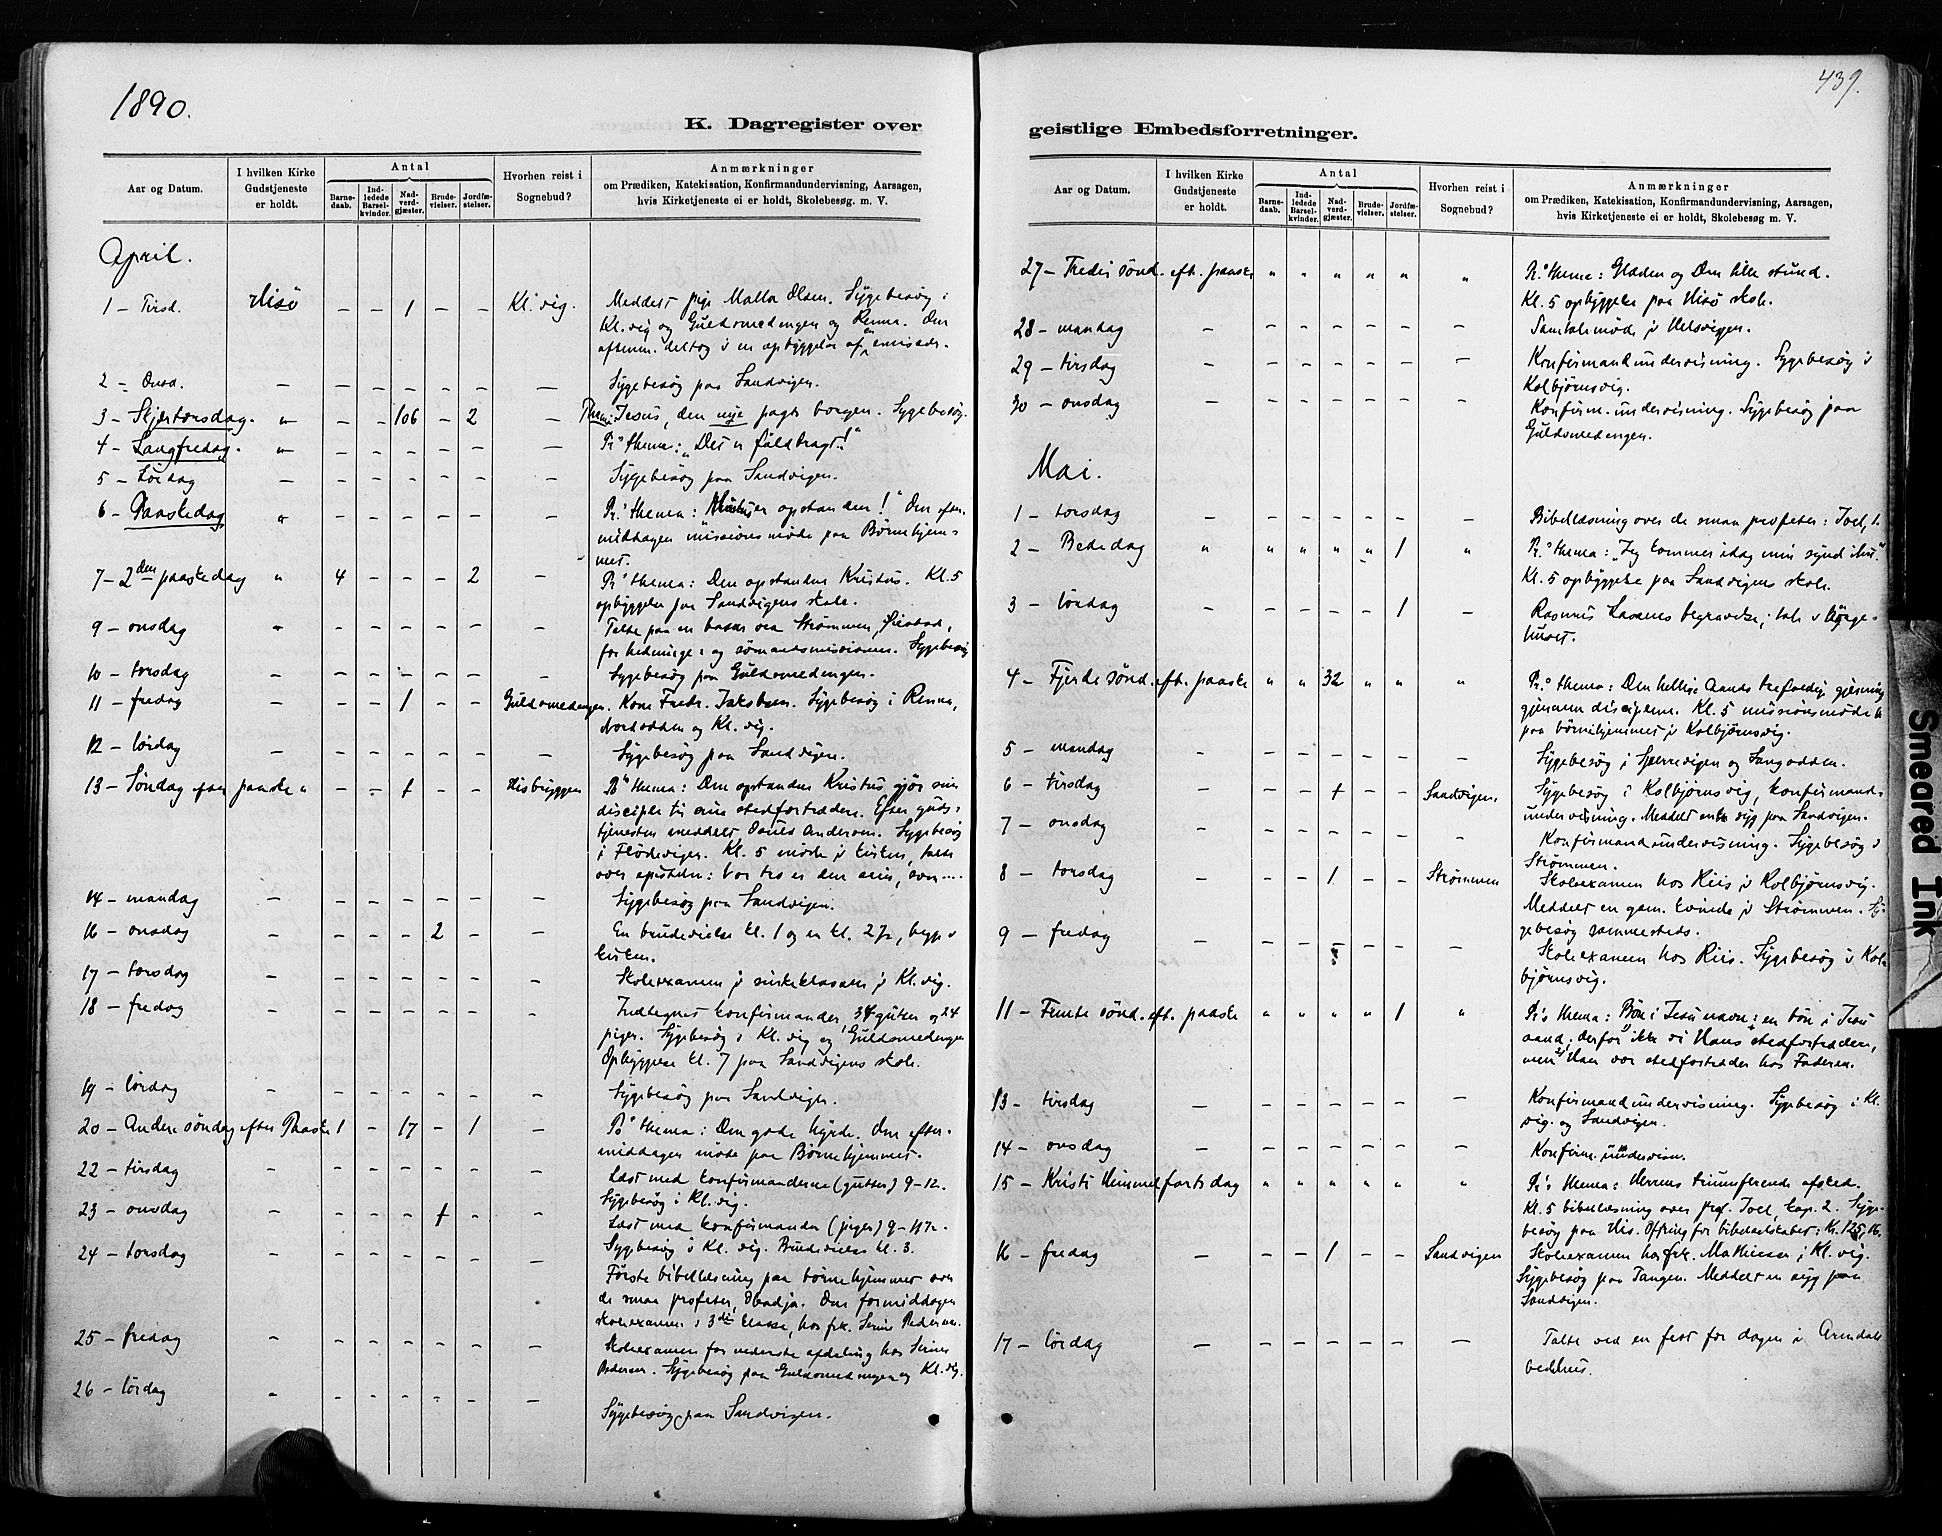 1890.
439.
K. Dagregister over
geistlige Embedsforretninger.
Aar og Datum.
I hvilken Kirke Gudstjeneste er holdt.
Antal
Barnedaab.
Indledede Barselkvinder.
Nadverdgjæster.
Brudevielser.
Jordfæstelser.
Hvorhen reist i Sognebud?
Anmærkninger
om Prædiken, Katekisation, Konfirmandundervisning, Aarsagen,
hvis Kirketjeneste ei er holdt, Skolebesøg. m. V.
April.
1 – Tirsd. Hisö – – 1 – – Kl. vig. Meddelt pige Malla Olsen. Sygebesøg i
Kl. vig og Guldsmedengen og Renna. Den
afterm. deltog i en opbyggelse af
2 – Onsd. – – – – – – – Sygebesøg paa Sandvigen.
3 – Skjærtorsdag. " – – 106 – 2 – Thema: Jesus, den nye pagts borgen. Sygebesøg.
4 – Langfredag. " – – – – – – Pr. thema: "Det er fuldbragt!"
5 – Lördag – – – – – – – Sygebesøg paa Sandvigen.
6 – Paaskedag " – – – – – – Pr. thema: opstanden! Den efter-
middagen missionsmöde paa Børnehjem-
met.
7 – 2den paaskedag " 4 – – – 2 – Pr. thema: Den opstandne Kristus. Kl. 5
opbyggelse paa Sandvigens skole.
9 – onsdag " – – – – – – Talte paa en basar ved Strømmen,
for hedninge: og sömandsmissionen. Sygebesøg
10 – torsdag – – – – – – – Sygebesøg paa Guldsmedengen.
11 – fredag – – – 1 – – Guldsmedengen. Kone Fredr. Jakobsen. Sygebesøg i Renna,
Nordodden og Kl. vig.
12 – lördag – – – – – – – Sygebesøg paa Sandvigen.
13 – Söndag efter paaske " – – 1 – – Hisbryggen Pr. thema: Den opstandne Kristus gjør sine
disciple til sine stedfortrædere. Efter guds-
tjenesten meddelt Anderson. Sygebesøg
i Flödevigen. Kl. 5 möde i kirken, talte
over epistelen: Vor tro er den seir, som....
14 – mandag – – – – – – – Sygebesøg paa Sandvigen.
16 – onsdag – – – – 2 – – En brudevielse kl. 1 og en kl. 2½, begge i
kirken.
17 – torsdag – – – – – – – Skoleexamen i i Kl. vig.
18 – fredag – – – – – – – Indtegnet konfirmander 34 gutter og 24
piger. Sygebesøg i Kl. vig og Guldsmedengen
Opbyggelse kl. 7 paa Sandvigens skole.
19 – lördag – – – – – – – Sygebesøg paa Sandvigen.
20 – Anden söndag efter Paaske 1 – 17 – 1 – Pr. thema: Den gode hyrde. Den efter-
middagen möde paa Børnehjemmet.
22 – tirsdag – – – – – – – Læst med konfirmanderne (gutter) 9–12.
Sygebesøg i Kl. vig.
23 – onsdag – – – – 1 – – Læst med konfirmander (piger) 9–
Sygebesøg i Kl. vig. Brudevielse kl. 3.
24 – torsdag – – – – – – – Første bibellæsning paa børnehjemmet over
de smaa profeter, Obadja. Den formiddagen
skoleexamen i 3die klasse, hos frk. Serine Pedersen.
25 – fredag – – – – – – – Skoleexamen for nederste afdeling hos Serine
Pedersen. Sygebesøg paa Guldsmedengen og Kl. vig.
26 – lördag – – – – – – – Sygebesøg paa Sandvigen.
Aar og Datum.
I hvilken Kirke Gudstjeneste er holdt.
Antal
Barnedaab.
Indledede Barselkvinder.
Nadverdgjæster.
Brudevielser.
Jordfæstelser.
Hvorhen reist i Sognebud?
Anmærkninger
om Prædiken, Katekisation, Konfirmandundervisning, Aarsagen,
hvis Kirketjeneste ei er holdt, Skolebesøg m. V.
27 – Tredje sönd. eft. paaske " " " " " " Pr. thema: Glæden og Den lille stund.
Kl. 5 opbyggelse paa Hisö skole.
28 – mandag – – – – – – – Samtalemöde i Helsvigen.
29 – tirsdag – – – – – – – Konfirmandundervisning. Sygebesøg i
Kolbjørnsvig.
30 – onsdag – – – – – – – Konfirm. undervisning. Sygebesøg paa
Guldsmedengen.
Mai.
1 – torsdag – – – – – – – Bibellæsning over de smaa profeter: Joel, 1.
2 – Bededag " " " " " 1 " Pr. thema: "Jeg kommer idag min synd ihu."
Kl. 5 opbyggelse paa Sandvigens skole.
3 – lördag – – – – – 1 – Rasmus begravelse; tale i sørge-
huset.
4 – Fjerde sönd. eft. paaske " " 32 " " " Pr. thema: Den hellige Aands trefoldige gjerning
gjennem disciplene. Kl. 5 missionsmöde
paa börnehjemmet i Kolbjørnsvig.
5 – mandag – – – – – – – Sygebesøg i og Langodden.
6 – tirsdag – – – 1 – – Sandvigen. Sygebesøg i Kolbjørnsvig, konfirmand-
undervisning. Meddelt en syg paa Sandvigen.
7 – onsdag – – – – – – – Konfirmandundervisning. Sygebesøg i
Strømmen.
8 – torsdag – – – 1 – – Strømmen Skoleexamen hos Riis i Kolbjørnsvig.
Meddelt en gam. kvinde i Strømmen. Sy-
gebesøg sammesteds.
9 – fredag – – – – – – – Skoleexamen hos Riis. Sygebesøg i Kol-
bjørnsvig.
11 – Femte sönd. eft. paaske " " " " 1 " Pr's thema: Bön i Jesu navn: en bön i Jesu
aand; derfor ikke vi Hans stedfortrædere,
men Han vor stedfortræder hos Faderen.
13 – tirsdag – – – – – – – Konfirmandundervisning. Sygebesøg i Kl.
vig. og Sandvigen.
14 – onsdag – – – – – – – Konfirm. undervisn.
15 – Kristi Himmelfartsdag " " " " " " Pr's thema: Herrens triumferende afsked.
Kl. 5 bibellæsning over prof. Joel, kap. 2. Syge-
besøg paa His. Offring for bibelselskabet: Kr. 125,16.
16 – fredag – – – 1 – – Sandvigen Skoleexamen hos frk. Mathiesen i Kl. vig.
Sygebesøg paa Tangen. Meddelt en syg paa
Sandvigen.
17 – lördag – – – – – – – Talte ved en fest for dagen i Arendals
bedehus.
Smeared Ink